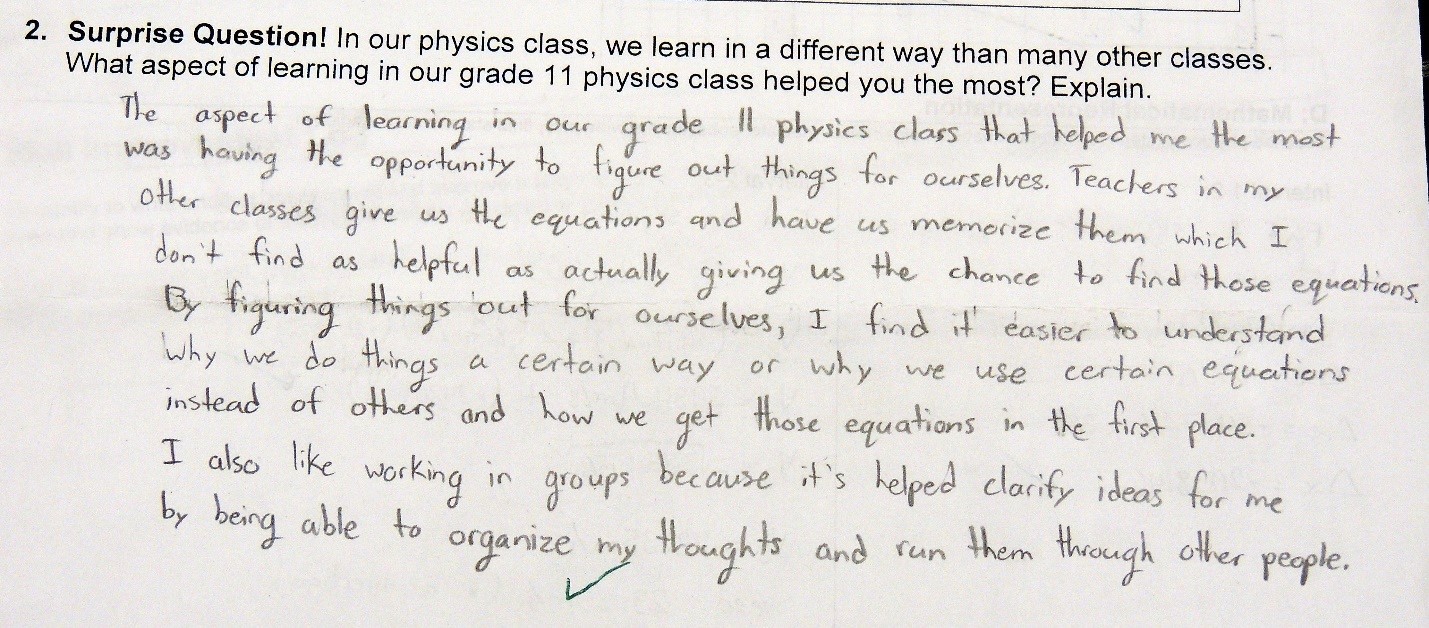 2. Surprise Question! In our physics class, we learn in a different way than many other classes.
What aspect of learning in our grade 11 physics class helped you the most? Explain.
The aspect of learning in our grade 11 physics class that helped me the most
was having the opportunity to figure out things for ourselves. Teachers in my
other classes give us the equations and have us memorize them which I
don't find as helpful as actually giving us the chance to find those equations.
By figuring things out for ourselves, I find it easier to understand
why we do things a certain way or why we use certain equations
instead of others and how we get those equations in the first place.
I also like working in groups because it's helped clarify ideas for me
by being able to organize my thoughts and run them through other people.